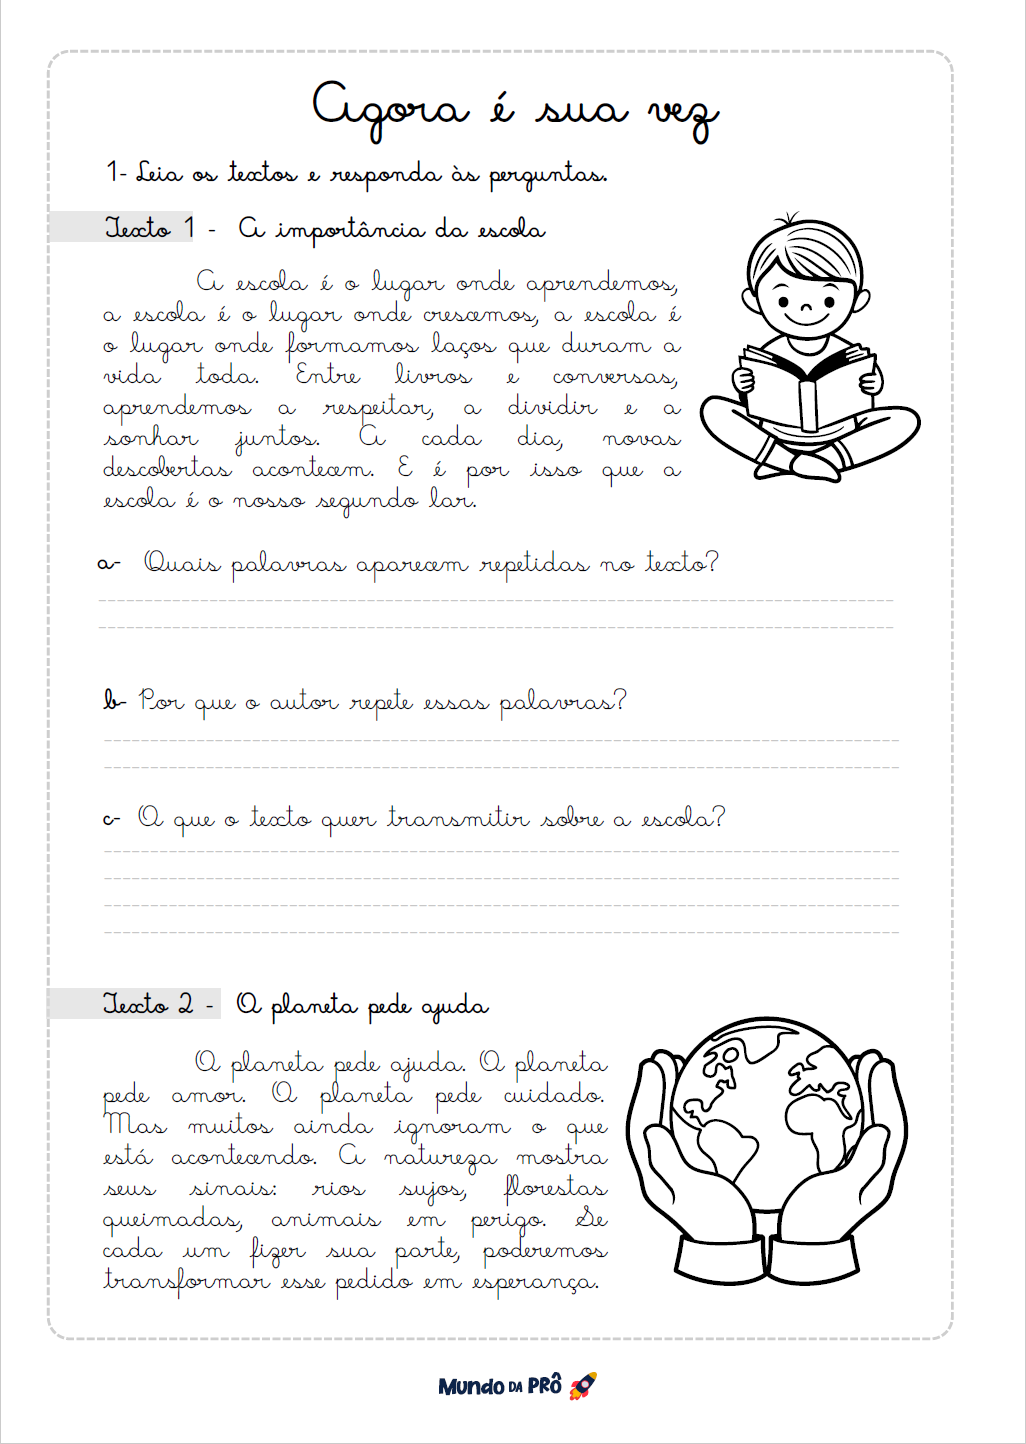 Agora é sua vez
1- Leia os textos e responda às perguntas.
Texto 1 - A importância da escola
A escola é o lugar onde aprendemos,
a escola é o lugar onde crescemos, a escola é
o lugar onde formamos laços que duram a
vida toda. Entre livros e conversas,
aprendemos a respeitar, a dividir e a
sonhar juntos. A cada dia, novas
descobertas acontecem. E é por isso que a
escola é o nosso segundo lar.
a- Quais palavras aparecem repetidas no texto?
b- Por que o autor repete essas palavras?
c- O que o texto quer transmitir sobre a escola?
Texto 2 - O planeta pede ajuda
O planeta pede ajuda. O planeta
pede amor. O planeta pede cuidado.
Mas muitos ainda ignoram o que
está acontecendo. A natureza mostra
seus sinais: rios sujos, florestas
queimadas, animais em perigo. Se
cada um fizer sua parte, poderemos
transformar esse pedido em esperança.
Mundo DA PRÔ